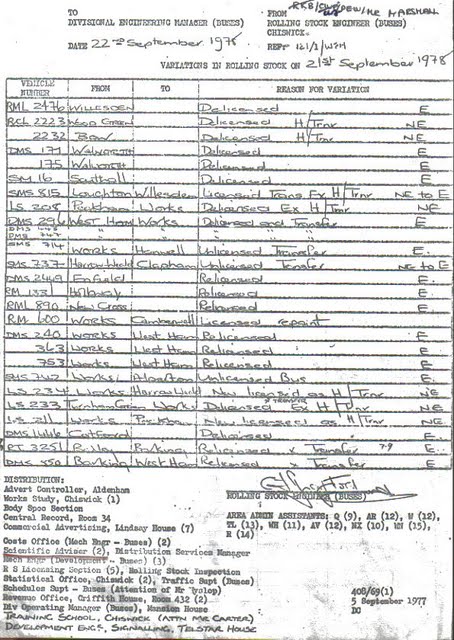 TO
DIVISIONAL ENGINEERING MANAGER (BUSES)
DATE 22nd September 1978
FROM MR MARSHALL
ROLLING STOCK ENGINEER (BUSES)
CHISWICK.
REF: 121/1/WPH
VARIATIONS IN ROLLING STOCK ON 21st September 1978
VEHICLE NUMBER FROM TO REASON FOR VARIATION
RML 2476 WILLESDEN Delicensed E
RCL 2223 Wood Green Delicensed H/Trnr NE
2232 Bow Delicensed H/Trnr NE
DMS 171 Walworth Delicensed E
175 Walworth Delicensed E
SM 16 Southall Delicensed E
SMS 815 Loughton Willesden Licensed Trans Ex H/Trnr NE to E
LS 208 Peckham Works Delicensed Ex H/Trnr NE
DMS 296 West Ham Works Delicensed and Transfer E
DMS " " " "
DMS 747 " " " "
SMS 714 Works Hanwell Unlicensed Transfer E
SMS 737 Harrow Weald Clapham Unlicensed Transfer NE to E
DMS 2449 Enfield Relicensed E
RM 1331 Holloway Relicensed E
RML 890 New Cross Relicensed E
RM 600 Works Camberwell Licensed repaint E
DMS 240 Works West Ham Relicensed E
363 Works West Ham Relicensed E
753 Works West Ham Relicensed E
SMS Works Unlicensed Bus E
LS 234 Works Harrow Weald New licensed as H/Trnr NE
LS 233 Turnham Green Works Delicensed & TRANSFER Ex H/Trnr NE
LS 211 Works Peckham New licensed as H/Trnr NE
DMS 1446 Catford Delicensed E
RT 3251 Barking Relicensed x Transfer 7.9 E
DMS 350 Barking West Ham Relicensed x Transfer E
DISTRIBUTION:
Advert Controller, Aldenham
Works Study, Chiswick (1)
Body Spoo Section
Central Record, Room 34
Commercial Advertising, Lindsay House (7)
Costs Office (Mech Engr - Buses) (2)
Scientific Adviser (2), Distribution Services Manager
Mech Engr (Development - Buses) (3)
R S Licensing Section (5), Rolling Stock Inspection
Statistical Office, Chiswick (2), Traffic Supt (Buses)
Schedules Supt - Buses (Attention of Mr)
Revenue Office, Griffith House, Room 432 (2)
Div Operating Manager (Buses), Mansion House
TRAINING SCHOOL, CHISWICK (ATTN MR CARTER)
DEVELOPMENT ENG'S, SIGNALLING, TELSTAR HOUSE
ROLLING STOCK ENGINEER (BUSES)
AREA ADMIN ASSISTANTS: Q (9), AR (12), W (12),
TL (13), WH (11), AV (12), NX (10), WN (15),
R (14)
408/69(1)
5 September 1977
DC